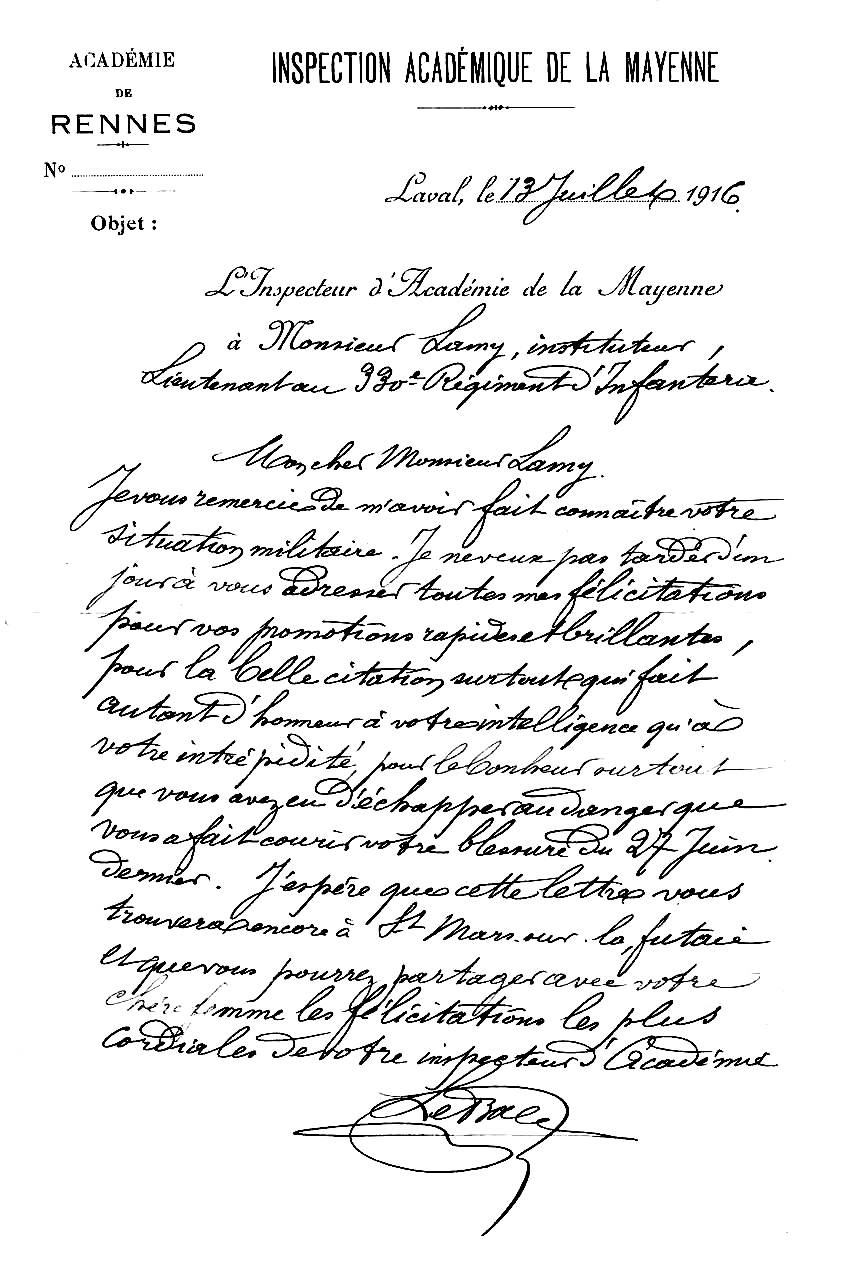 ACADÉMIE
DE
RENNES
No
Objet :
INSPECTION ACADÉMIQUE DE LA MAYENNE
Laval, le 13 Juillet 1916.
L'Inspecteur d'Académie de la Mayenne
à Monsieur Lamy, instituteur,
Lieutenant au 330e Régiment d'Infanterie.
Mon cher Monsieur Lamy.
Je vous remercie de m'avoir fait connaître votre
situation militaire. Je ne veux pas tarder d'un
jour à vous adresser toutes mes félicitations
pour vos promotions rapides et brillantes,
pour la belle citation surtout qui fait
autant d'honneur à votre intelligence qu'à
votre intrépidité, pour le bonheur surtout
que vous avez eu d'échapper au danger que
vous a fait courir votre blessure du 27 Juin
dernier. J'espère que cette lettre vous
trouvera encore à St Mars-sur-la-futaie
et que vous pourrez partager avec votre
chère femme les félicitations les plus
cordiales de votre inspecteur d'Académie